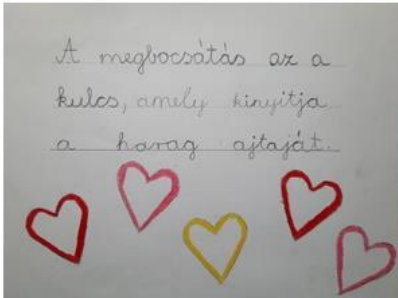 A megbocsátás az a
kulcs, amely kinyitja
a harag ajtaját.